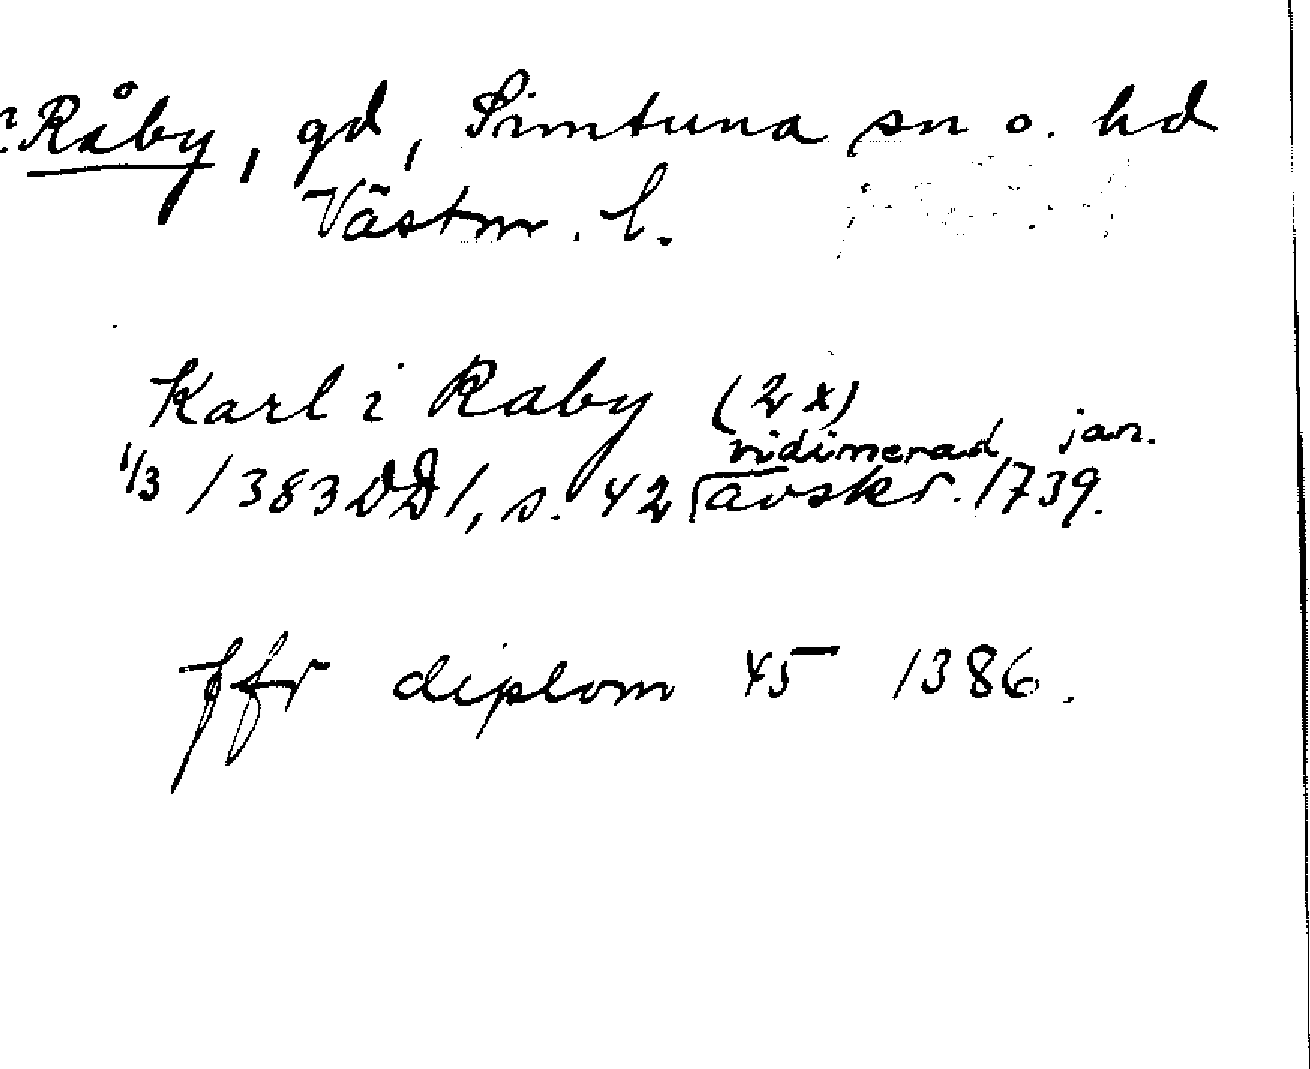 Råby, gd, Simtuna sn o. hd
Västm. l.
Karl i Raby (2x)
vidimerad jan.
1/3 1383 DD1, s. 42 avskr. 1739.
Jfr diplom 45 1386.